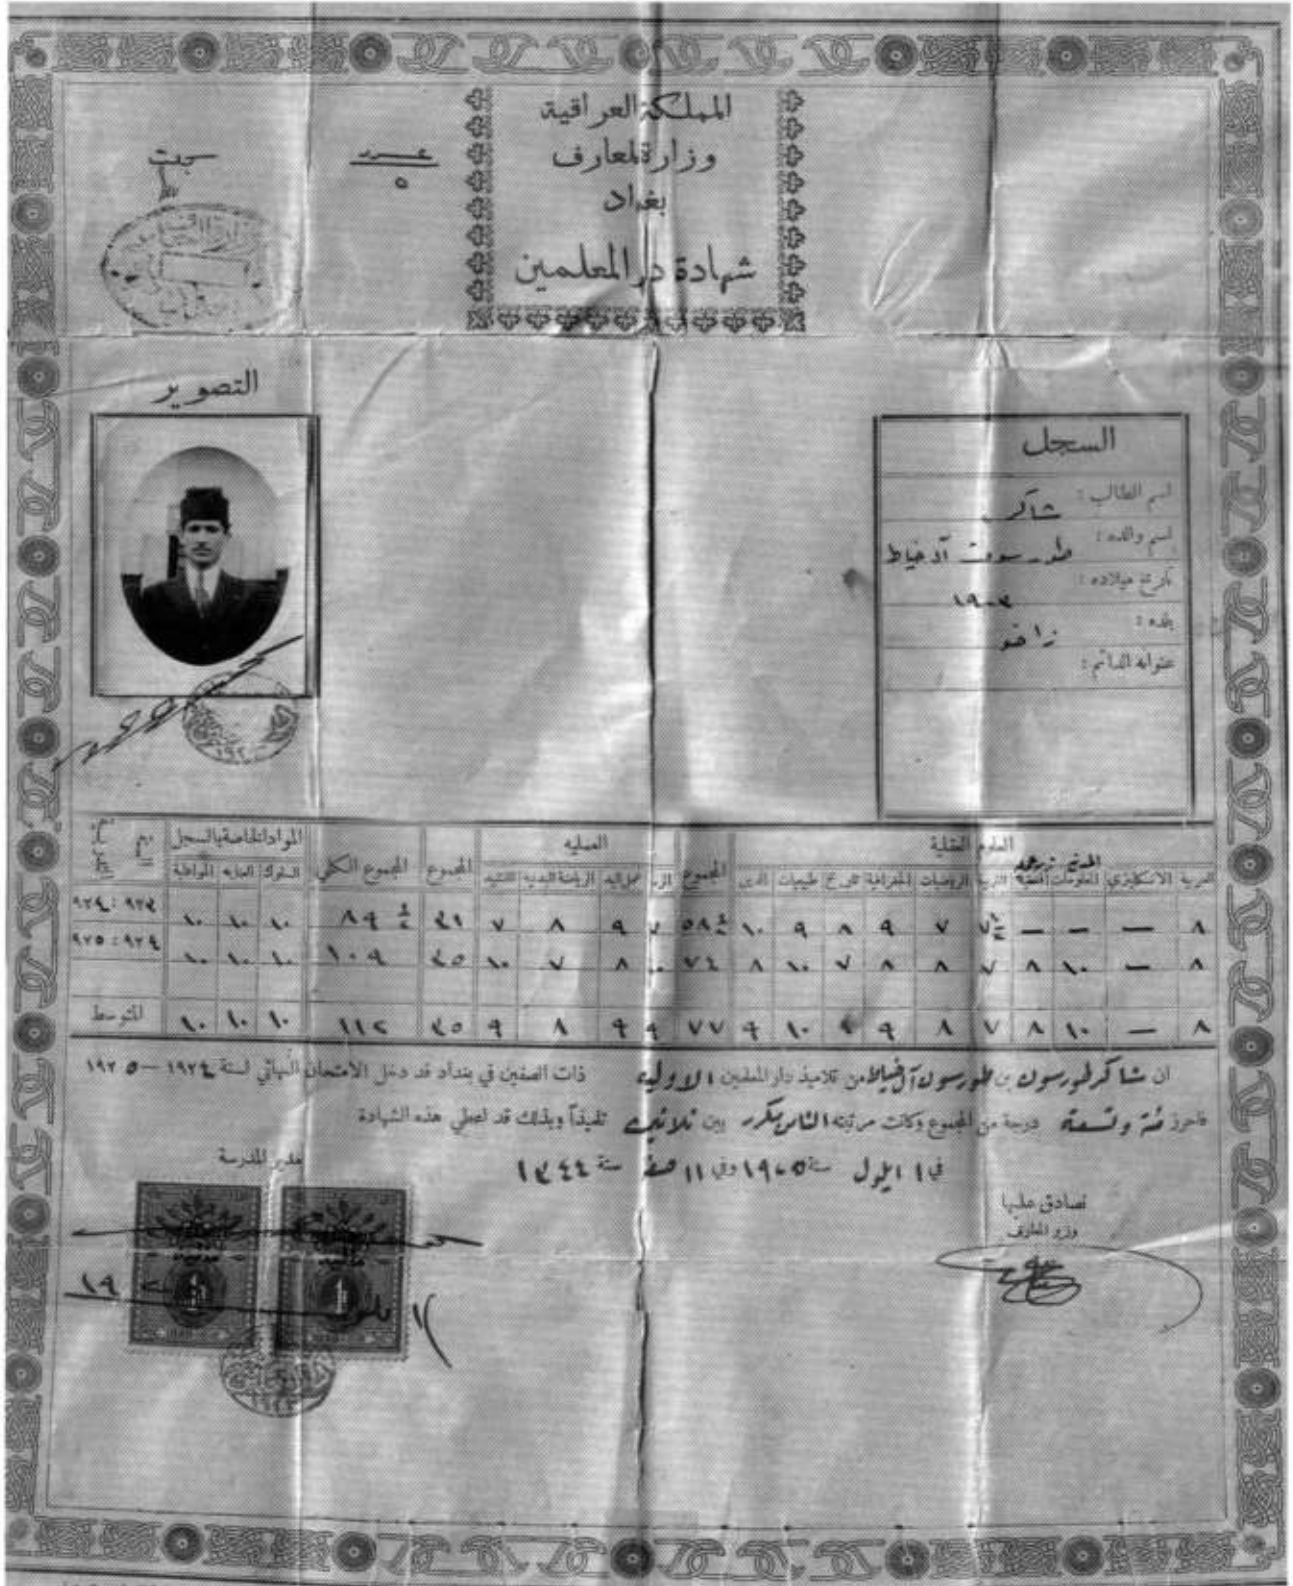 المملكة العراقية
وزارة المعارف
بغداد
شهادة دار المعلمين
عدد
٥
سجلت
التصوير
السجل
اسم الطالب : شاكر
اسم والده : طورسون آل خياط
تاريخ ميلاده : ١٩٠٣
بلده : زاخو
عنوانه الدائم :
العلوم العقلية العملية المجموع الكلي المواد الخاصة بالسجل
العربية الانكليزي المعلومات التربية الرياضيات الجغرافية التاريخ طبيعيات الدين المجموع الرسم عمل اليد الرياضة البدنية النشيد المجموع السلوك العناية المواظبة
٨ — — — ٧½ ٧ ٩ ٨ ٩ ١٠ ٥٨½ ٧ ٩ ٨ ٧ ٣١ ٨٩½ ١٠ ١٠ ١٠ ٩٢٣ : ٩٢٤
٨ — ١٠ ٨ ٧ ٨ ٨ ٧ ١٠ ٨ ٧٤ ١٠ ٨ ٧ ١٠ ٣٥ ١٠٩ ١٠ ١٠ ١٠ ٩٢٤ : ٩٢٥
٨ — ١٠ ٨ ٧ ٨ ٩ ١٠ ٩ ٧٧ ٩ ٩ ٨ ٩ ٣٥ ١١٢ ١٠ ١٠ ١٠ المتوسط
ان شاكر طورسون بن طورسون آل خياط من تلاميذ دار المعلمين الاولية ذات الصفين في بغداد قد دخل الامتحان النهائي لسنة ١٩٢٤ — ١٩٢٥
فاحرز مئة وتسعة درجة من المجموع وكانت مرتبته الثامن مكرر بين ثلاثين تلميذاً وبذلك قد اعطي هذه الشهادة
في ١ ايلول سنة ١٩٢٥ وفي ١١ صفر سنة ١٣٤٤
مدير المدرسة
نصادق عليها
وزير المعارف